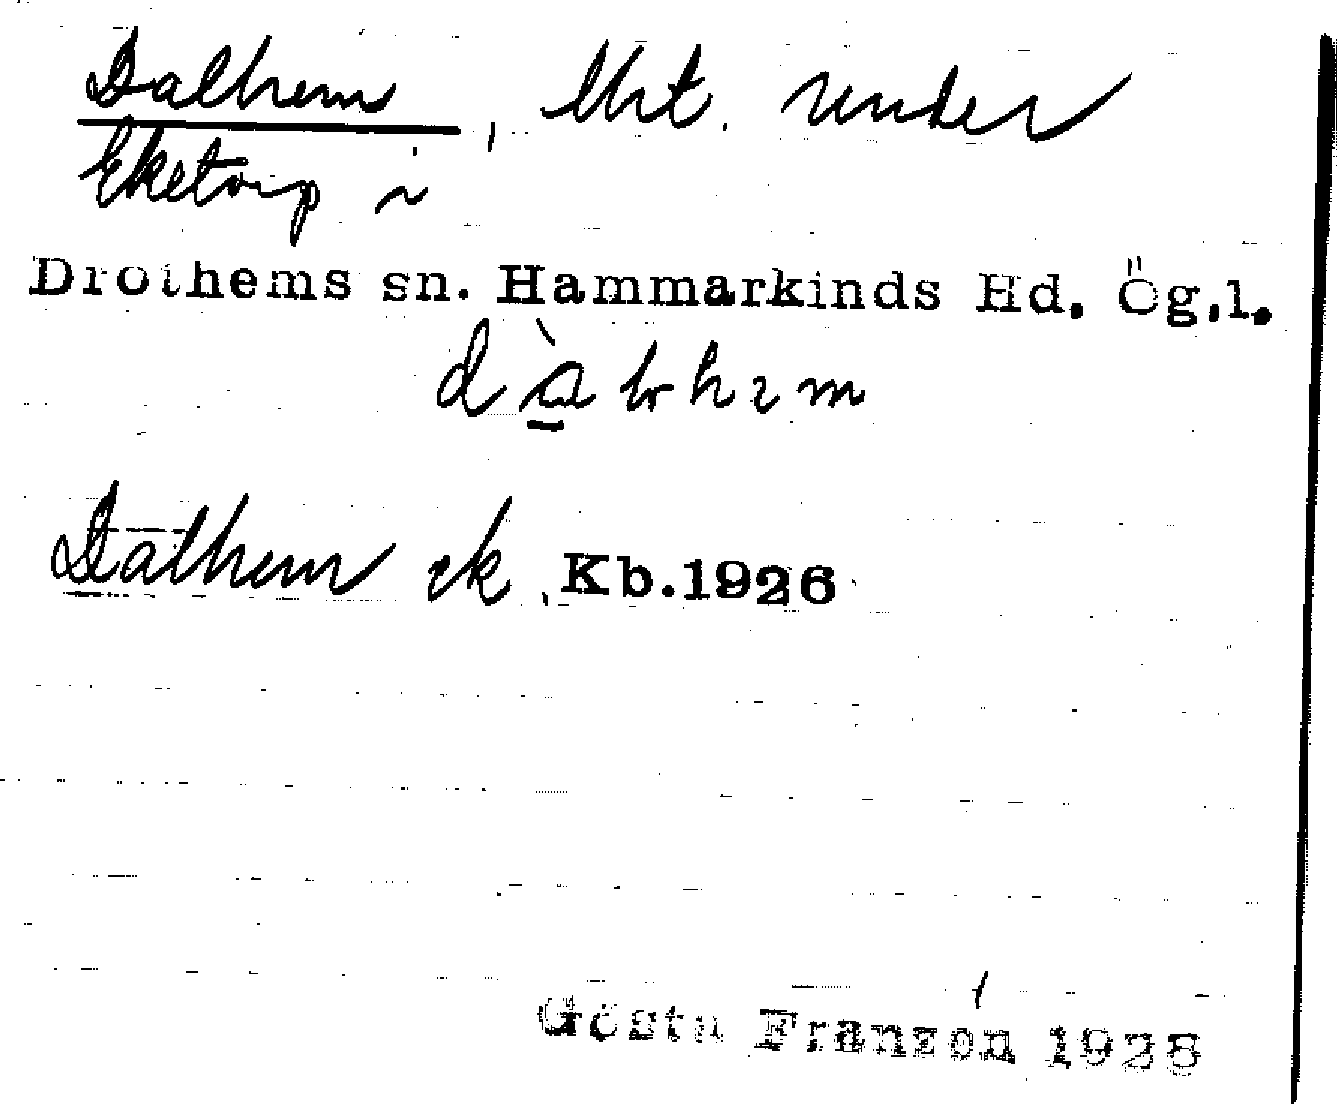 Dalhem, lht. under
Eketorp i
Drothems sn. Hammarkinds Hd. Ög.l.
Dalhem ek, Kb.1926
Gösta Franzén 1928